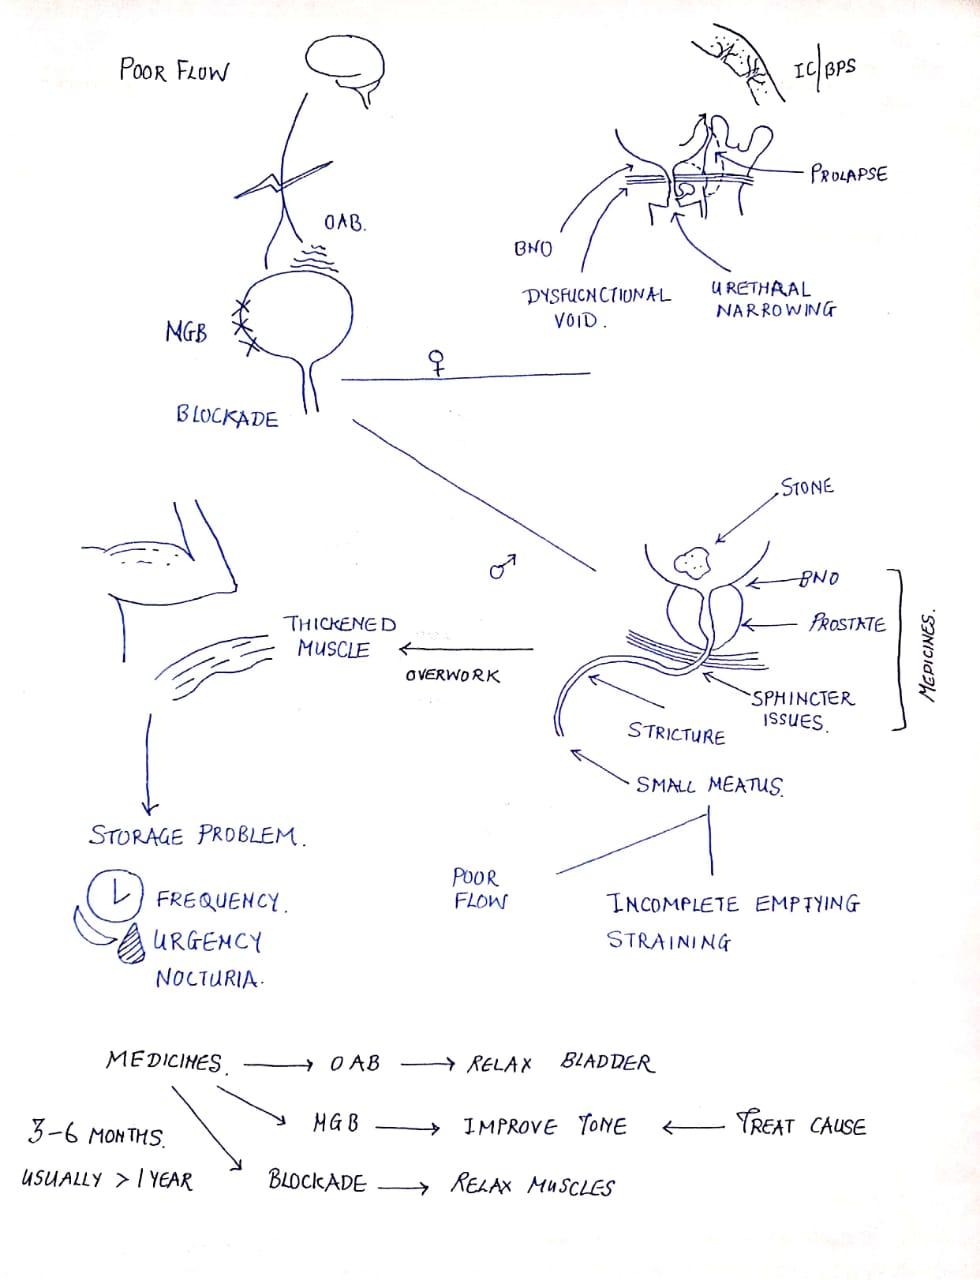 POOR FLOW
IC/BPS
PROLAPSE
OAB.
BNO
DYSFUCNCTIONAL
VOID.
URETHRAL
NARROWING
MGB
♀
BLOCKADE
STONE
♂
BNO
PROSTATE
MEDICINES.
THICKENED
MUSCLE
OVERWORK
SPHINCTER
ISSUES.
STRICTURE
SMALL MEATUS.
STORAGE PROBLEM.
FREQUENCY.
URGENCY
NOCTURIA.
POOR
FLOW
INCOMPLETE EMPTYING
STRAINING
MEDICINES. → OAB → RELAX BLADDER
MGB → IMPROVE TONE ← TREAT CAUSE
3-6 MONTHS.
USUALLY > 1 YEAR
BLOCKADE → RELAX MUSCLES